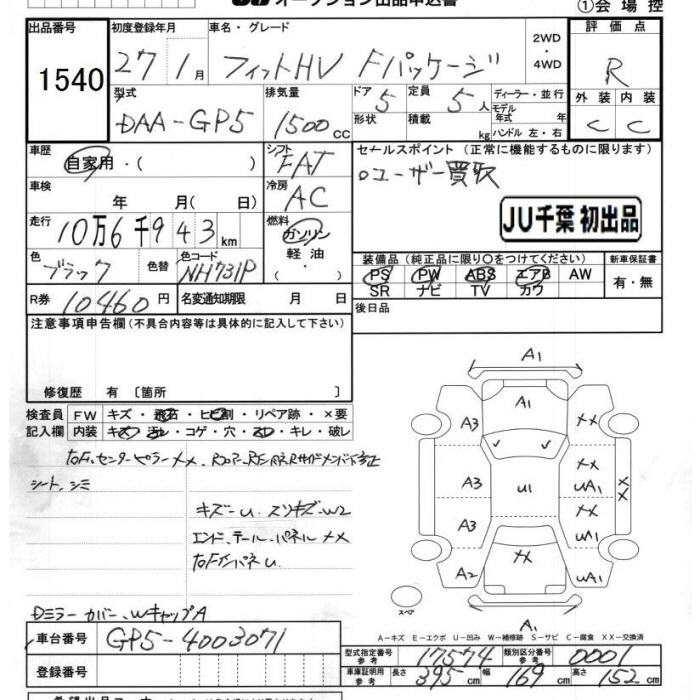 オークション出品申込書
①会場控
出品番号
1540
初度登録年月
27 1月
車名・グレード
フィットHV Fパッケージ
2WD
・
4WD
評価点
R
型式
DAA-GP5
排気量
1500 cc
ドア
5
形状
定員
5人
積載
kg
ディーラー・並行
モデル年式 年
ハンドル 左・右
外装 内装
C C
車歴
自家用・( )
シフト
FAT
セールスポイント (正常に機能するものに限ります)
ユーザー買取
車検
年 月( 日)
冷房
AC
JU千葉 初出品
走行
10万6千943km
燃料
ガソリン
軽油
・( )
色
ブラック
色替
色コード
NH731P
装備品(純正品に限り○をつけてください)
新車保証書
PS PW ABS エアB AW
SR ナビ TV カワ
有・無
R券 10460円
名変通知期限 月 日
後日品
注意事項申告欄(不具合内容等は具体的に記入して下さい)
修復歴 有〔箇所 〕
検査員 FW キズ・飛石・ヒビ割・リペア跡・×要
記入欄 内装 キズ・汚レ・コゲ・穴・スレ・キレ・破レ
シート、シミ
キズ-U. スリキズ-W2
エンド、テール-パネル XX
Dミラー カバー、WキャップA
A1
A1
A3 XX
XX
A3 U1 UA1 XX
XX
A3 UA1
XX
A2 UA1
スペア
A1
A-キズ E-エクボ U-凹み W-補修跡 S-サビ C-腐食 XX-交換済
車台番号 GP5-4003071
登録番号
型式指定番号 参考 17574 類別区分番号 参考 0001
車庫証明用 参考 長さ 395 cm 幅 169 cm 高さ 152 cm